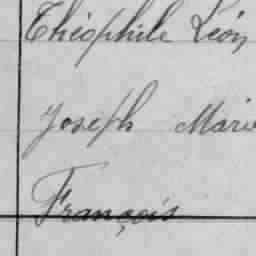 Théophile Léon
Joseph Marie
François